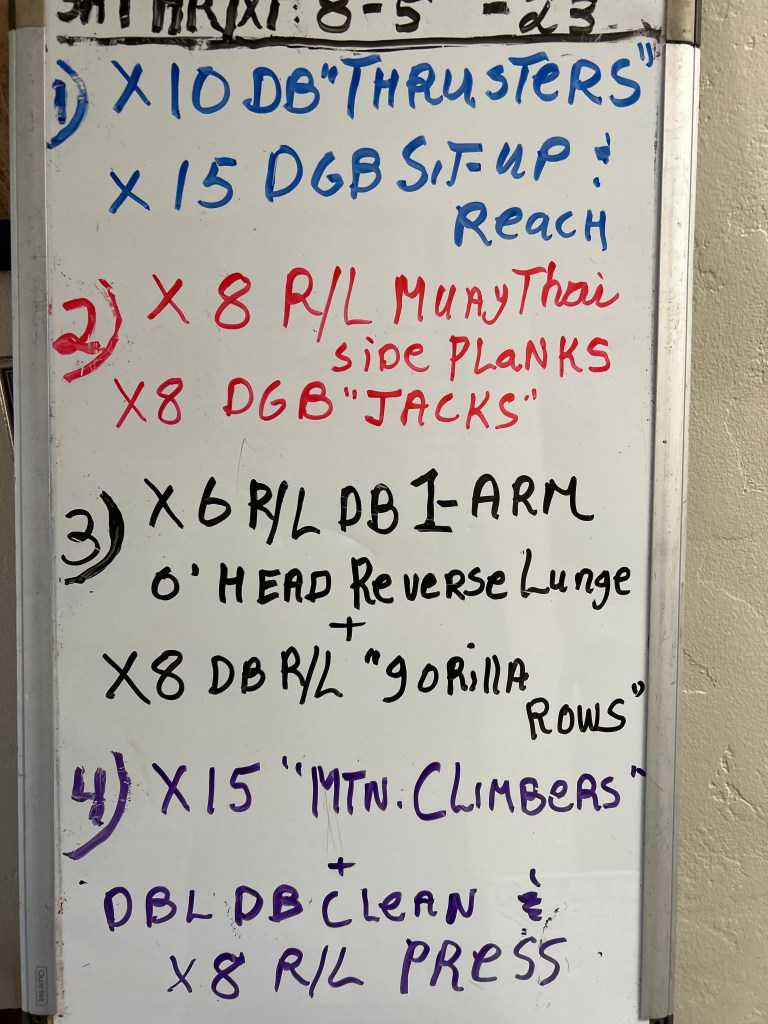 : 8-5 -23
1) X 10 DB "THRUSTERS"
X 15 DGB SIT-UP &
Reach
2) X 8 R/L MUAY Thai
SIDE PLANKS
X8 DGB "JACKS"
3) X 6 R/L DB 1-ARM
O' HEAD Reverse Lunge
+
X8 DB R/L "gORillA
ROWS"
4) X 15 "MTN. CLIMBeRS"
+
DBL DB CLeAN &
X8 R/L PReSS
Quartet